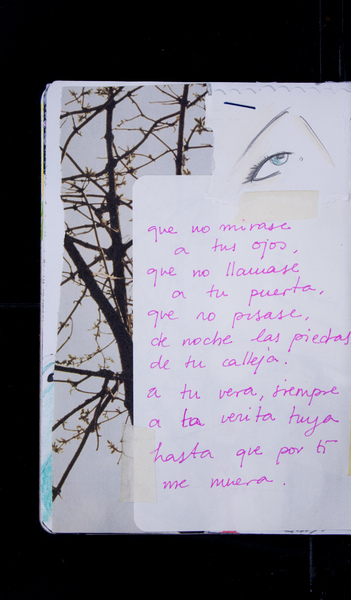 que no mirase
a tus ojos,
que no llamase
a tu puerta,
que no pisase,
de noche las piedras
de tu calleja.
a tu vera, siempre
a la verita tuya
hasta que por ti
me muera.